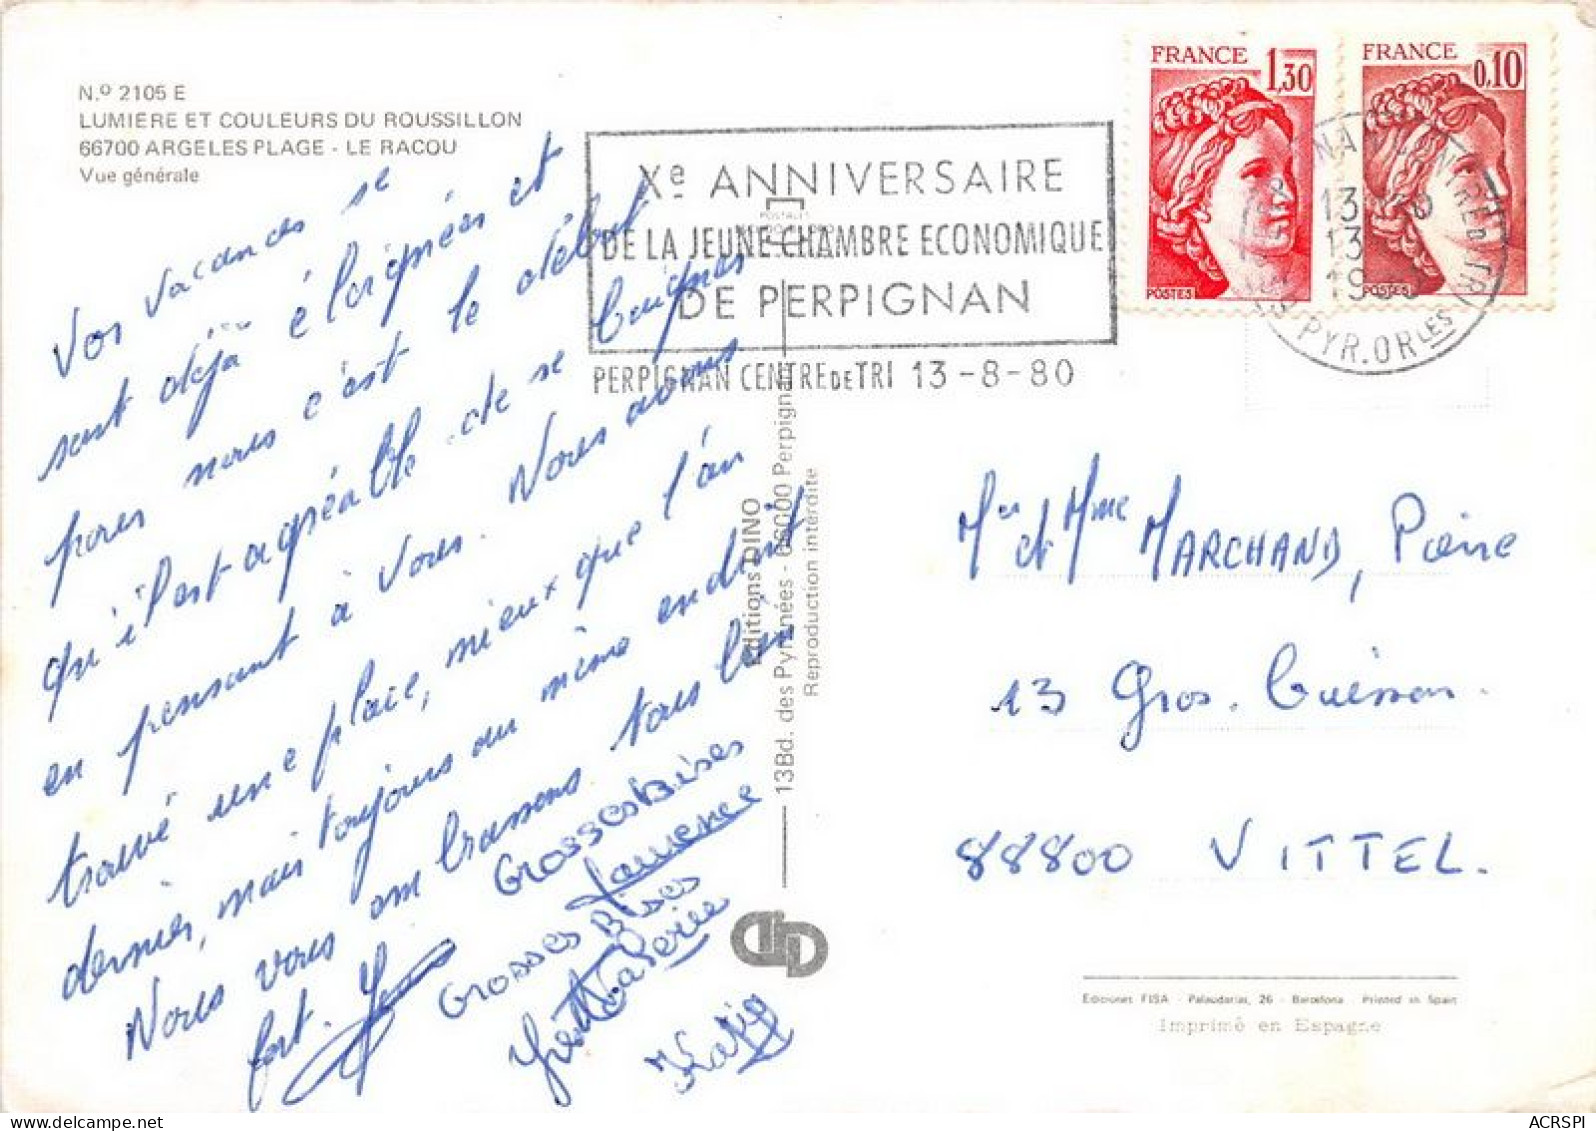 N.º 2105 E
LUMIERE ET COULEURS DU ROUSSILLON
66700 ARGELES PLAGE - LE RACOU
Vue générale
Xe ANNIVERSAIRE
DE LA JEUNE CHAMBRE ECONOMIQUE
DE PERPIGNAN
PERPIGNAN CENTRE DE TRI 13-8-80
FRANCE 1,30
POSTES
FRANCE 0,10
POSTES
PYR. ORLES
Vos vacances se
sont déjà éloignées et
pour nous c'est le début
qu'il est agréable de se baigner
en pensant à vous. Nous avons
trouvé une place, mieux que l'an
dernier, mais toujours au même endroit
Nous vous embrassons tous bien
fort.
Grosses Bises
Laurence
Grosses Bises
Valérie
Yvette
Katig
Editions DINO
13 Bd. des Pyrénées - 66000 Perpignan
Reproduction interdite
Mr et Mme MARCHAND, Pierre
13 Gros.
88800 VITTEL.
Ediciones FISA - Palaudarias, 26 - Barcelona - Printed in Spain
Imprimé en Espagne
ACRSPI